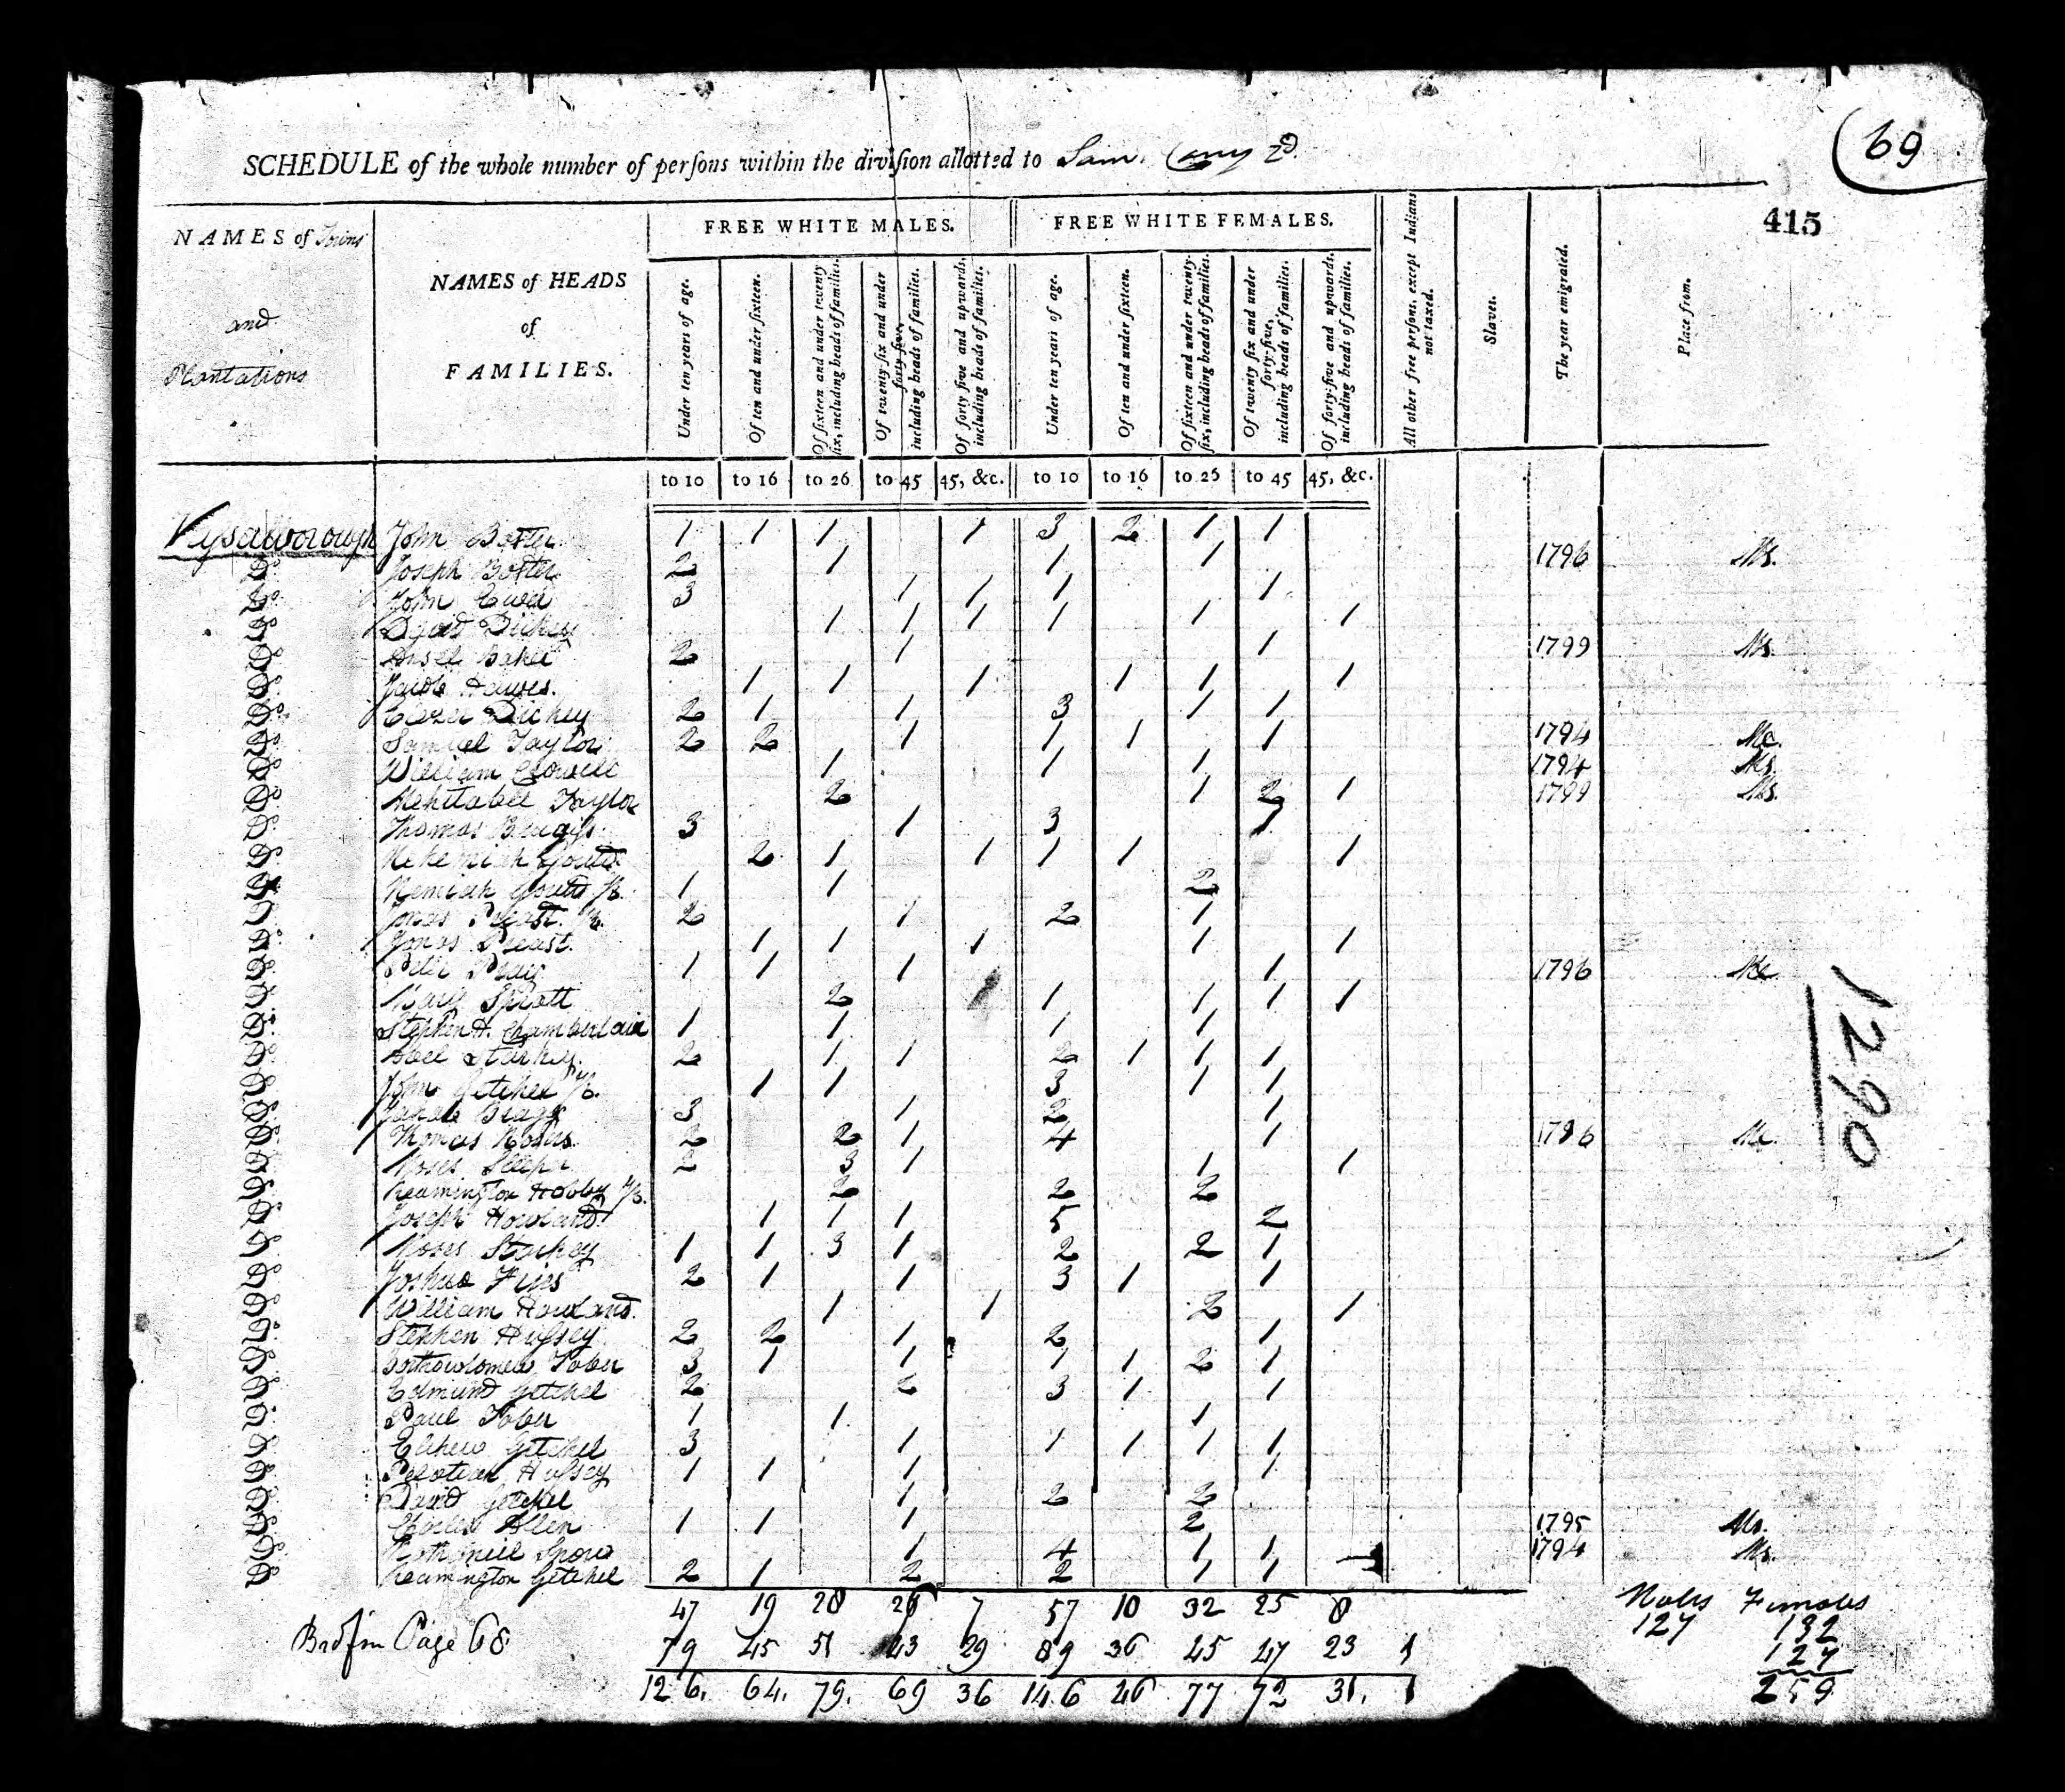 69
415
SCHEDULE of the whole number of perſons within the diviſion allotted to Sam. Cony 2d.
NAMES of Towns and Plantations
NAMES of HEADS of FAMILIES.
FREE WHITE MALES.
FREE WHITE FEMALES.
Under ten years of age.
Of ten and under ſixteen.
Of ſixteen and under twenty ſix, including heads of families.
Of twenty ſix and under forty five, including heads of families.
Of forty five and upwards, including heads of families.
Under ten years of age.
Of ten and under ſixteen.
Of ſixteen and under twenty-ſix, including heads of families.
Of twenty ſix and under forty-five, including heads of families.
Of forty-five and upwards, including heads of families.
All other free perſons, except Indians not taxed.
Slaves.
The year emigrated.
Place from.
to 10 to 16 to 26 to 45 45, &c. to 10 to 16 to 26 to 45 45, &c.
John 1 1 1 1 3 2 1 1
Do. Joseph 2 1 1 1 1796 Ms.
Do. John 3 1 1 1 1
Do. David Dickey 1 1 1 1 1 1
Do. Ansel Baker 2 1 1 1799 Ms.
Do. Jacob Hawes. 1 1 1 1 1 1
Do. Elezer Dickey 2 1 1 3 1 1
Do. Samuel Taylor 2 2 1 1 1 1 1794 Me.
Do. William 1 1 1 1794 Ms.
Do. Mehitabel Taylor 2 1 2 1 1799 Ms.
Do. Thomas Burgiſs 3 1 3 1
Do. Nehemiah Gould 2 1 1 1 1 1
Do. Nemiah Gould Jr. 1 1 2
Do. Jonas Preast Jr. 2 1 2 1
Do. Jonas Preast. 1 1 1 1 1
Do. Peter Pray 1 1 1 1 1796 Me
Do. Mary Spratt 2 1 1 1 1
Do. Stephen A. Chamberlain 1 1 1 1
Do. Abel Starkey. 2 1 1 2 1 1 1
Do. John Getchel Jr. 1 1 3 1 1
Do. Jacob Bragg 3 1 2 1
Do. Thomas 2 2 1 4 1 1796 Me.
Do. Moses Sleeper 2 3 1 1 1
Do. Reamington Hobby Jr. 2 2 2
Do. Joseph Howland 1 1 1 5 2
Do. Moses Starkey 1 1 3 1 2 2 1
Do. Joshua 2 1 1 3 1 1
Do. William Howland. 1 1 2 1
Do. Stephen Huſsey 2 2 1 2 1
Do. Barthowlomew Tober 3 1 1 1 1 2 1
Do. Edmund Getchel 2 2 3 1 1
Do. Paul Tober 1 1 1
Do. Elihew Getchel 3 1 1 1 1 1
Do. Huſsey 1 1 1 1
Do. David Getchel 1 2 2
Do. Charles Allen 1 1 1 2 1795 Ms.
Do. Nathaniel Snow 1 4 1 1 1794 Ms.
Do. Reamington Getchel 2 1 2 2 1 1
47 19 28 26 7 57 10 32 25 8
Brd from Page 68 79 45 51 43 29 89 36 45 47 23 1
126. 64. 79. 69 36 146 46 77 72 31. 1
Males Females
127 132
127
259
1290